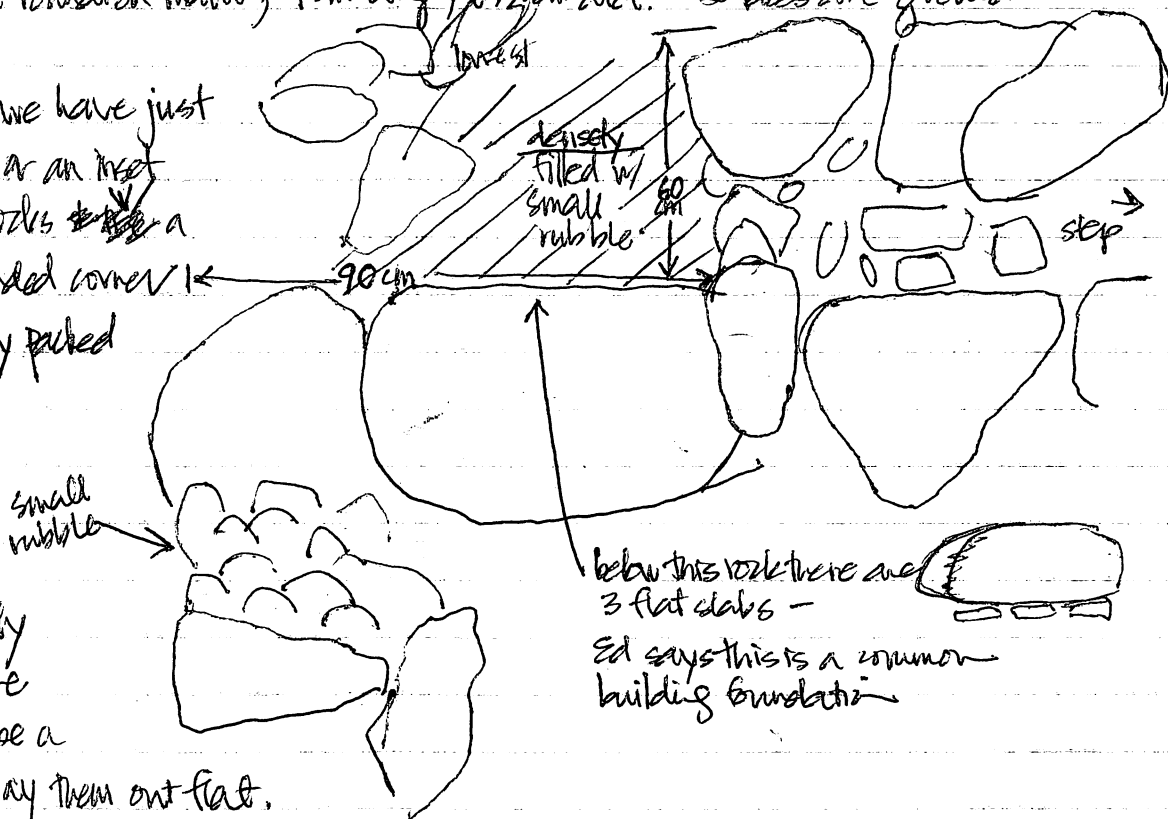 lowest
we have just
or an inset
a
corner
90 cm
packed
densely
filled w/
small
rubble
60
cm
step
small
rubble
below this rock there are
3 flat slabs –
Ed says this is a common
building foundation
be a
lay them out flat.